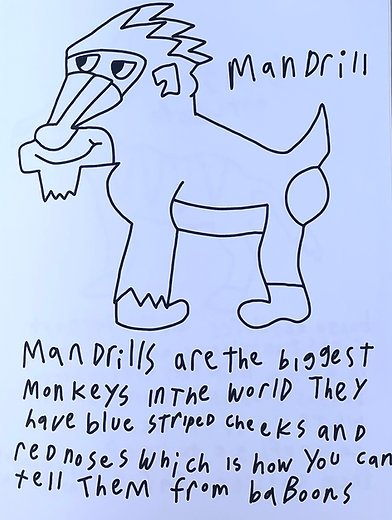 ManDrill
ManDrills are the biggest
Monkeys in The World They
have blue striped cheeks and
red noses which is how You can
tell Them from baBoons